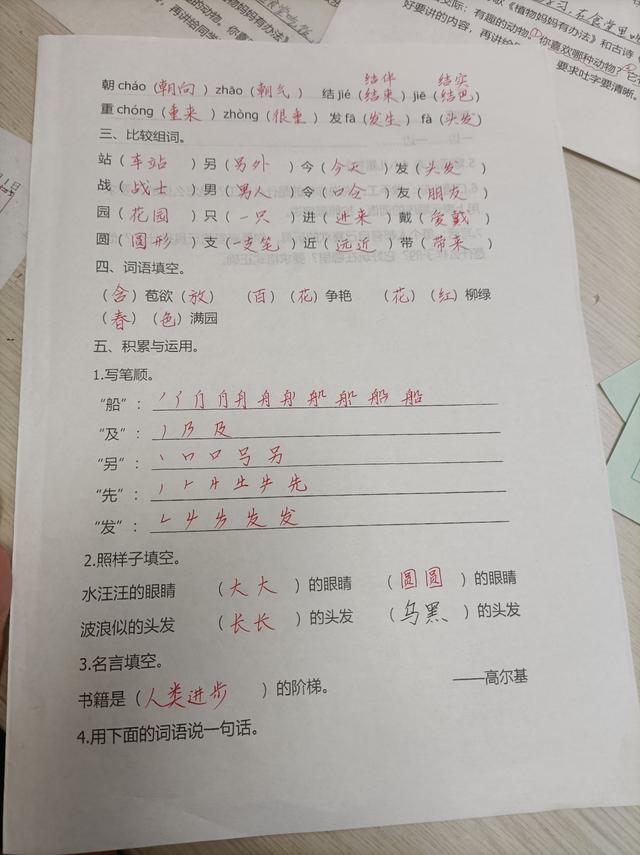 歌《植物妈妈有办法》和古诗《
交际：有趣的动物。①你喜欢哪种动物？②它
好要讲的内容，再讲给
要求吐字要清晰。
结伴 结实
朝 cháo（朝向）zhāo（朝气） 结 jié（结束）jiē（结巴）
重 chóng（重来）zhòng（很重）发 fā（发生）fà（头发）
三、比较组词。
站（车站）另（另外）今（今天）发（头发）
战（战士）男（男人）令（口令）友（朋友）
园（花园）只（一只）进（进来）戴（爱戴）
圆（圆形）支（一支笔）近（远近）带（带来）
四、词语填空。
（含）苞欲（放） （百）（花）争艳 （花）（红）柳绿
（春）（色）满园
五、积累与运用。
1.写笔顺。
“船”：
“及”：
“另”：
“先”：
“发”：
2.照样子填空。
水汪汪的眼睛 （大大）的眼睛 （圆圆）的眼睛
波浪似的头发 （长长）的头发 （乌黑）的头发
3.名言填空。
书籍是（人类进步）的阶梯。 ——高尔基
4.用下面的词语说一句话。